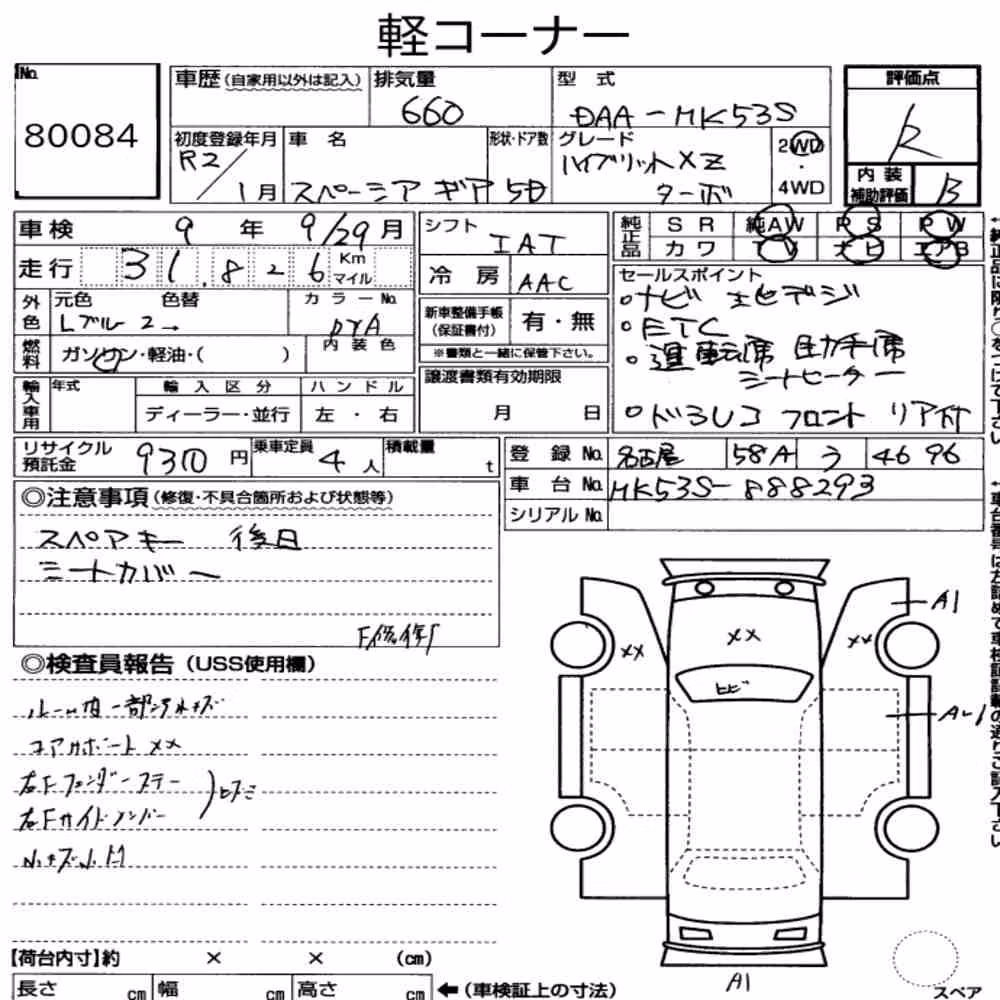 軽コーナー
No.
80084
車歴(自家用以外は記入)
排気量
660
型 式
DAA-MK53S
評価点
R
内装補助評価
B
初度登録年月
R2/1月
車 名
スペーシア ギア
形状・ドア数
5D
グレード
ハイブリットXZ
ターボ
2WD
・
4WD
車検
9 年 9/29 月
走行
31.826
Km
マイル
外色
元色
Lブルー2→
色替
カラーNo.
燃料
ガソリン・軽油・( )
内装色
輸入車用
年式
輸入区分
ディーラー・並行
ハンドル
左 ・ 右
シフト
IAT
冷 房
AAC
新車整備手帳
(保証書付)
有・無
※書類と一緒に保管下さい。
譲渡書類有効期限
月 日
純正品
S R
純AW
P S
P W
カワ
T V
エアB
セールスポイント
・ナビ 地デジ
・ETC
・運転席 助手席
シートヒーター
・ドラレコ フロント リア付
リサイクル預託金
9310円
乗車定員
4人
積載量
t
登 録 No.
名古屋 581 う 4696
車 台 No.
MK53S-888293
シリアル No.
◎注意事項(修復・不具合箇所および状態等)
スペアキー 後日
シートカバー
F修復
◎検査員報告(USS使用欄)
コアサポート XX
右Fフェンダーステー
右Fサイドメンバー
XX
XX
XX
A1
A1
【荷台内寸】約 × × (cm)
長さ cm
幅 cm
高さ cm
←(車検証上の寸法)
スペア